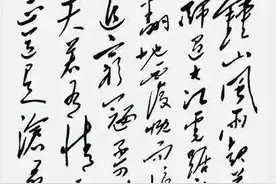 鐘山風雨起蒼
師過大江虎踞
翻地覆慨而慷
追窮寇不可
天若有情
正道是滄桑